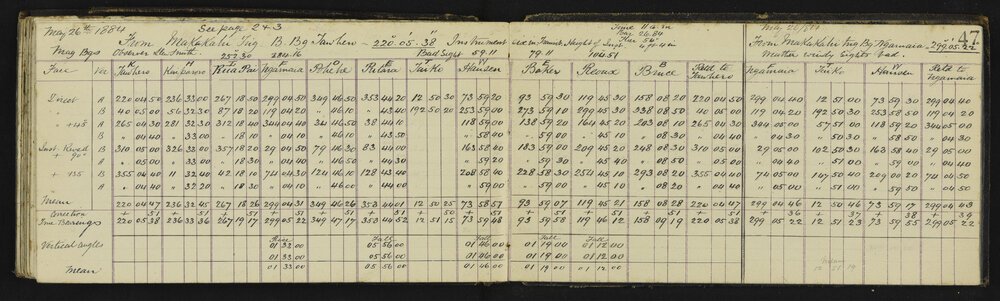 May 26th 1884 See page 2 & 3
From Makakahi Trig Bg
220°.05'.38"
Instrument
47
From Makakahi Trig Bg Ngamaia 299.05.22
Mag Bgs Observer Smith Bad light
257.30
59.11
79.11
106.51
4 ft 4 in
Face Ver Ngamaia Hansen Baker Bruce Retd to Ngamaia Hansen Retd to Ngamaia
Direct A 220 04 50 236 33 00 267 18 50 299 04 50 349 46 50 353 44 20 12 50 30 73 59 20 93 59 30 119 45 30 158 08 20 220 04 50 299 04 40 12 51 00 73 59 30 299 04 40
" B 40 05 00 56 32 30 87 18 20 119 04 20 " 46 10 " 43 40 192 50 20 253 59 00 273 59 10 299 45 30 338 08 50 40 05 00 119 04 20 192 50 30 253 58 50 119 04 20
" +45 A 265 04 30 281 32 30 312 18 40 344 04 40 34 46 50 38 44 10 118 59 00 138 59 20 164 45 20 203 08 10 265 04 30 344 05 00 57 51 40 118 59 20 344 05 00
B " 04 40 " 33 00 " 18 10 " 04 10 " 46 10 " 43 50 " 58 00 " 59 00 " 45 10 " 08 30 " 04 40 " 04 30 " 50 30 " 58 30 " 04 30
+ 90° B 310 05 00 326 33 00 357 18 20 29 04 50 79 46 30 83 44 00 163 58 40 183 59 00 209 45 20 248 08 30 310 05 00 29 05 00 102 50 30 163 58 40 29 05 00
A " 05 00 " 33 00 " 18 30 " 04 30 " 46 50 " 44 30 " 59 20 " 59 30 " 45 40 " 08 50 " 05 00 " 04 40 " 51 00 " 59 00 " 04 40
" + 135 B 355 04 40 11 32 40 42 18 10 74 04 30 124 46 10 128 43 40 208 58 40 228 58 30 254 45 10 293 08 20 355 04 40 74 05 00 147 50 40 209 00 20 74 04 50
A " 04 40 " 32 20 " 18 30 " 04 10 " 46 00 " 44 00 " 59 00 " 59 00 " 45 10 " 08 20 " 04 40 " 05 00 " 51 00 " 59 50 " 05 00
Mean 220 04 47 236 32 45 267 18 26 299 04 31 349 46 26 353 44 01 12 50 25 73 58 57 93 59 07 119 45 21 158 08 28 220 04 47 299 04 46 12 50 46 73 59 17 299 04 43
Correction + 51 + 51 + 51 + 51 + 51 + 51 + 50 + 51 + 51 + 51 + 51 + 51 + 36 + 37 + 38 + 39
True Bearings 220 05 38 236 33 36 267 19 17 299 05 22 349 47 17 353 44 52 12 51 15 73 59 48 93 59 58 119 46 12 158 09 19 220 05 38 299 05 22 12 51 23 73 59 55 299 05 22
Rise Fall Fall Fall
Vertical angles 01 33 00 05 56 00 01 46 00 01 19 00 01 12 00
01 33 00 05 56 00 01 46 00 01 19 00 01 12 00
Mean 01 33 00 05 56 00 01 46 00 01 19 00 01 12 00
Mean
12 51 19